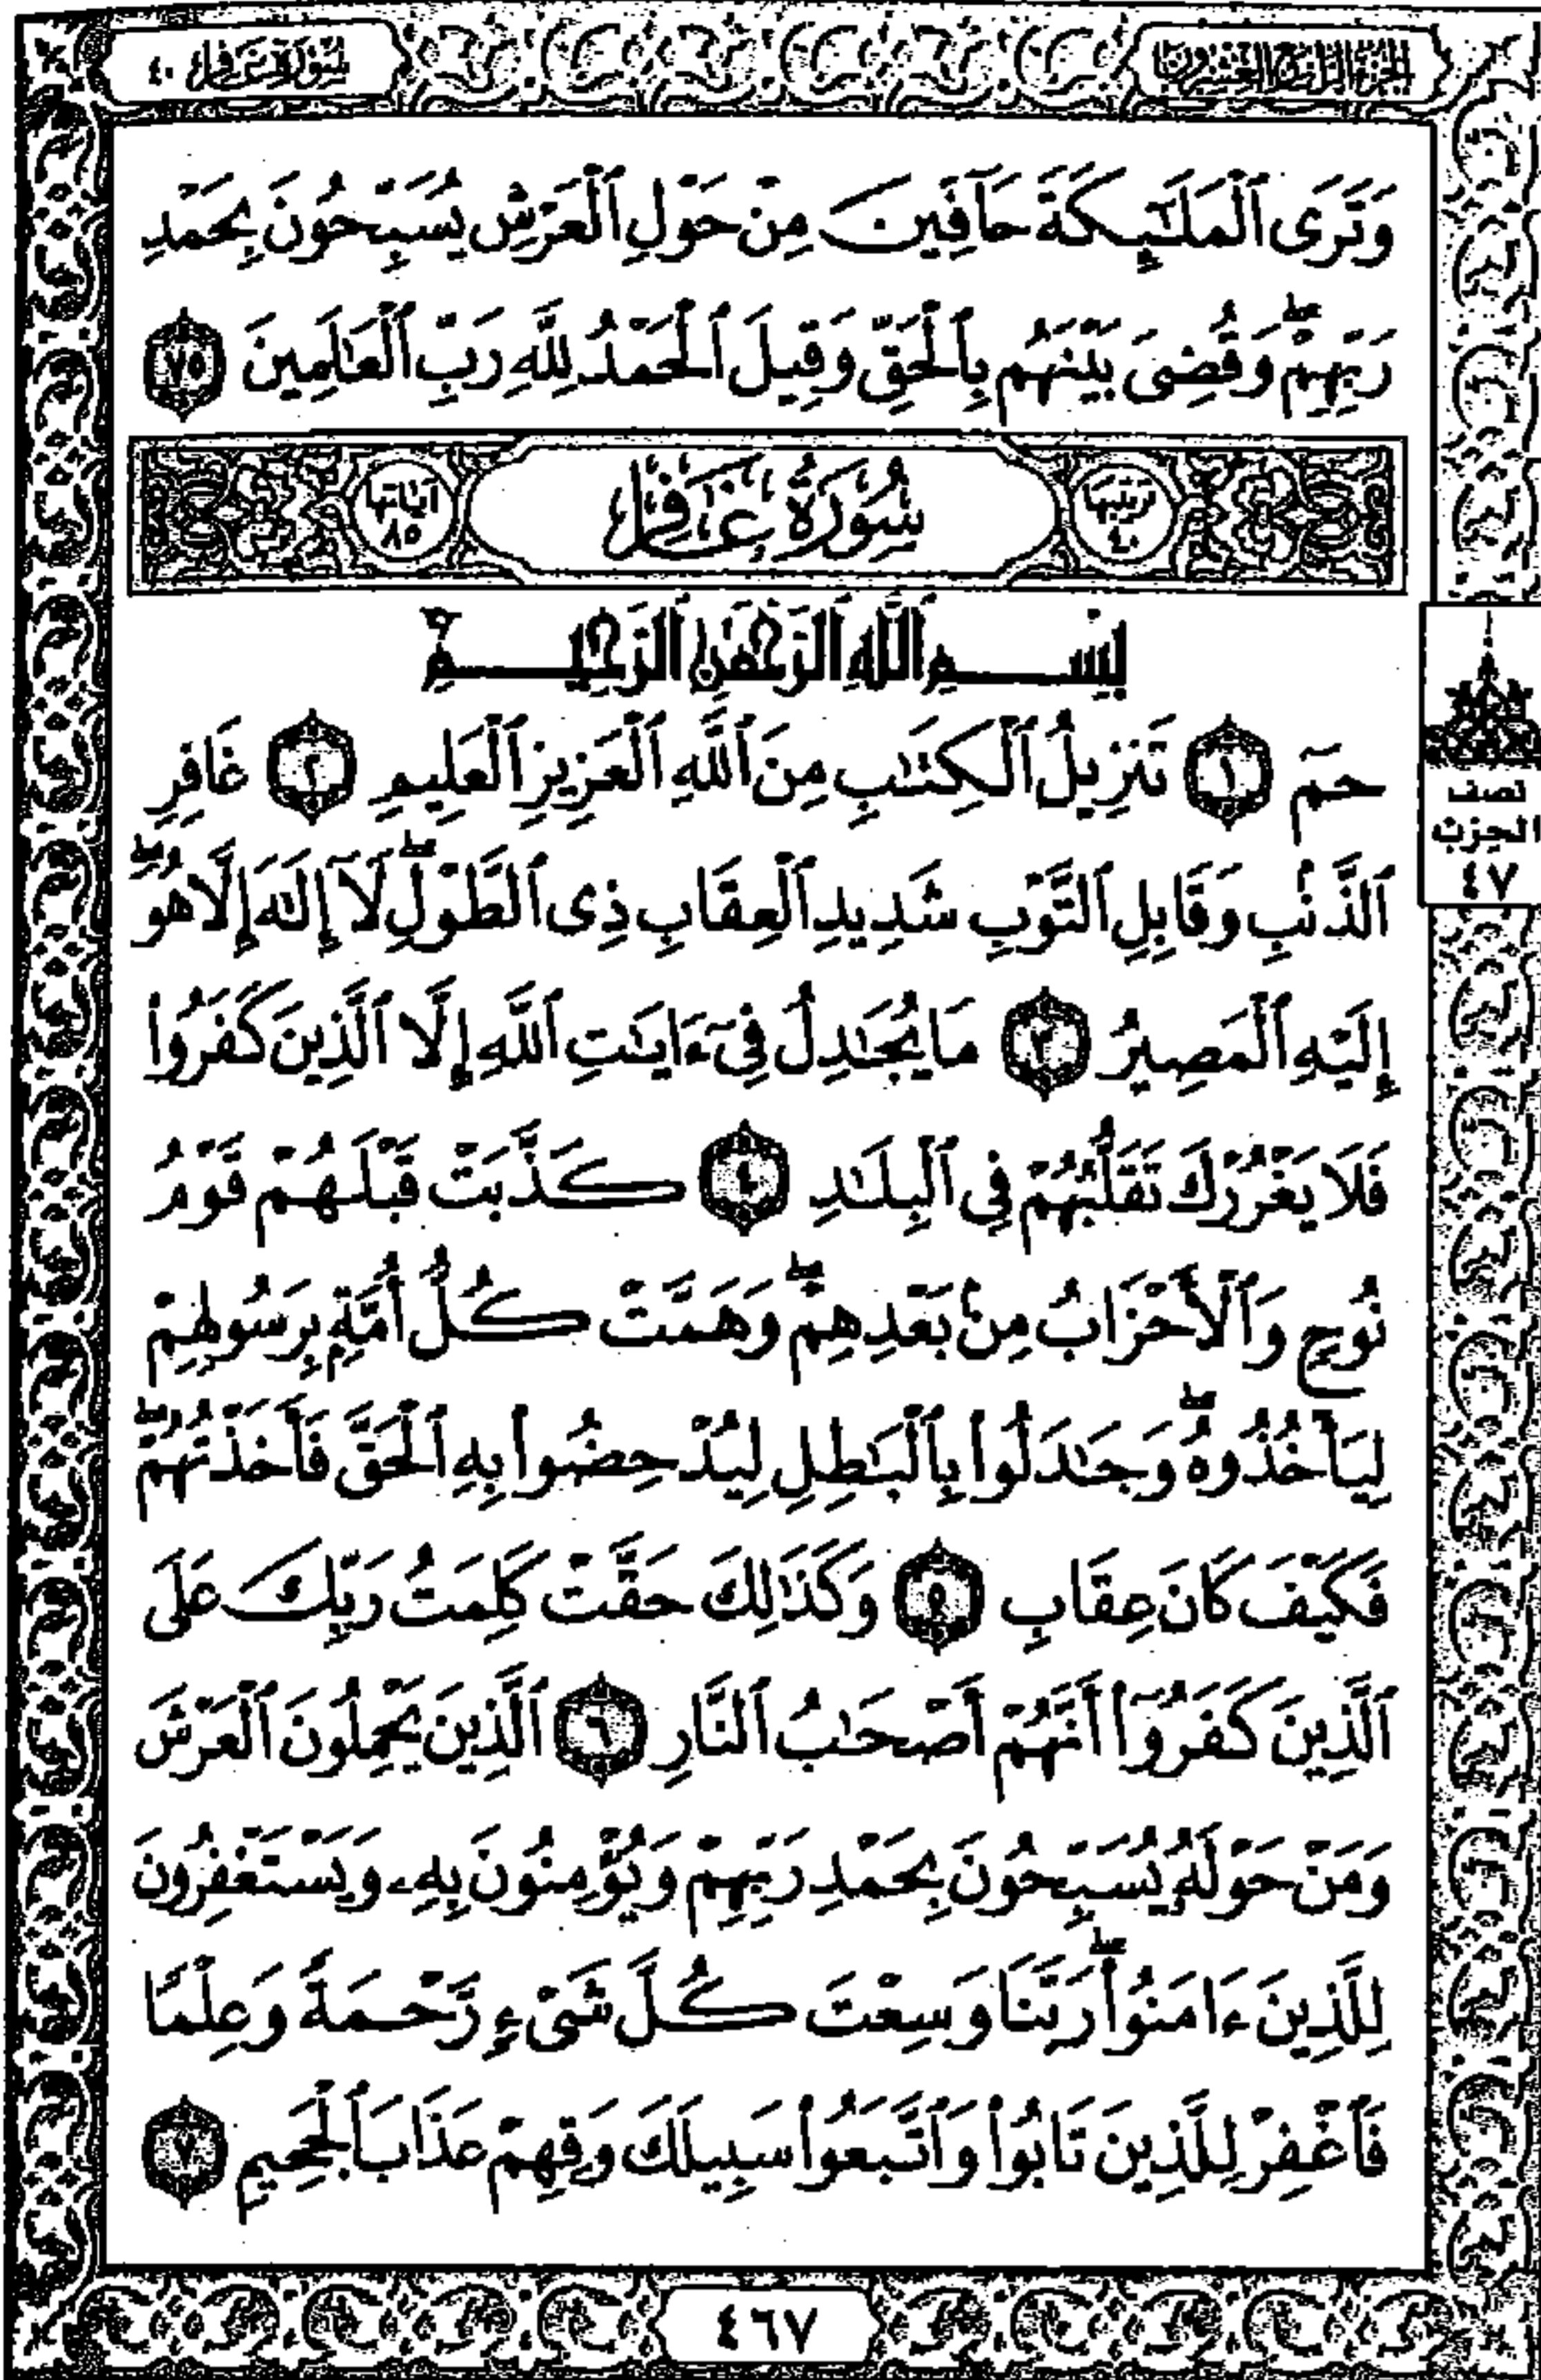 الجزء الرابع والعشرون
سورة غافر ٤٠
وَتَرَى ٱلْمَلَـٰٓئِكَةَ حَآفِّينَ مِنْ حَوْلِ ٱلْعَرْشِ يُسَبِّحُونَ بِحَمْدِ
رَبِّهِمْ ۖ وَقُضِىَ بَيْنَهُم بِٱلْحَقِّ وَقِيلَ ٱلْحَمْدُ لِلَّهِ رَبِّ ٱلْعَـٰلَمِينَ ٧٥
ترتيبها ٤٠
سُورَةُ غَافِرٍ
آياتها ٨٥
بِسْمِ ٱللَّهِ ٱلرَّحْمَـٰنِ ٱلرَّحِيمِ
حمٓ ١ تَنزِيلُ ٱلْكِتَـٰبِ مِنَ ٱللَّهِ ٱلْعَزِيزِ ٱلْعَلِيمِ ٢ غَافِرِ
ٱلذَّنۢبِ وَقَابِلِ ٱلتَّوْبِ شَدِيدِ ٱلْعِقَابِ ذِى ٱلطَّوْلِ ۖ لَآ إِلَـٰهَ إِلَّا هُوَ ۖ
إِلَيْهِ ٱلْمَصِيرُ ٣ مَا يُجَـٰدِلُ فِىٓ ءَايَـٰتِ ٱللَّهِ إِلَّا ٱلَّذِينَ كَفَرُوا۟
فَلَا يَغْرُرْكَ تَقَلُّبُهُمْ فِى ٱلْبِلَـٰدِ ٤ كَذَّبَتْ قَبْلَهُمْ قَوْمُ
نُوحٍ وَٱلْأَحْزَابُ مِنۢ بَعْدِهِمْ ۖ وَهَمَّتْ كُلُّ أُمَّةٍۭ بِرَسُولِهِمْ
لِيَأْخُذُوهُ ۖ وَجَـٰدَلُوا۟ بِٱلْبَـٰطِلِ لِيُدْحِضُوا۟ بِهِ ٱلْحَقَّ فَأَخَذْتُهُمْ ۖ
فَكَيْفَ كَانَ عِقَابِ ٥ وَكَذَٰلِكَ حَقَّتْ كَلِمَتُ رَبِّكَ عَلَى
ٱلَّذِينَ كَفَرُوٓا۟ أَنَّهُمْ أَصْحَـٰبُ ٱلنَّارِ ٦ ٱلَّذِينَ يَحْمِلُونَ ٱلْعَرْشَ
وَمَنْ حَوْلَهُۥ يُسَبِّحُونَ بِحَمْدِ رَبِّهِمْ وَيُؤْمِنُونَ بِهِۦ وَيَسْتَغْفِرُونَ
لِلَّذِينَ ءَامَنُوا۟ ۖ رَبَّنَا وَسِعْتَ كُلَّ شَىْءٍ رَّحْمَةً وَعِلْمًا
فَٱغْفِرْ لِلَّذِينَ تَابُوا۟ وَٱتَّبَعُوا۟ سَبِيلَكَ وَقِهِمْ عَذَابَ ٱلْجَحِيمِ ٧
نصف
الحزب
٤٧
٤٦٧